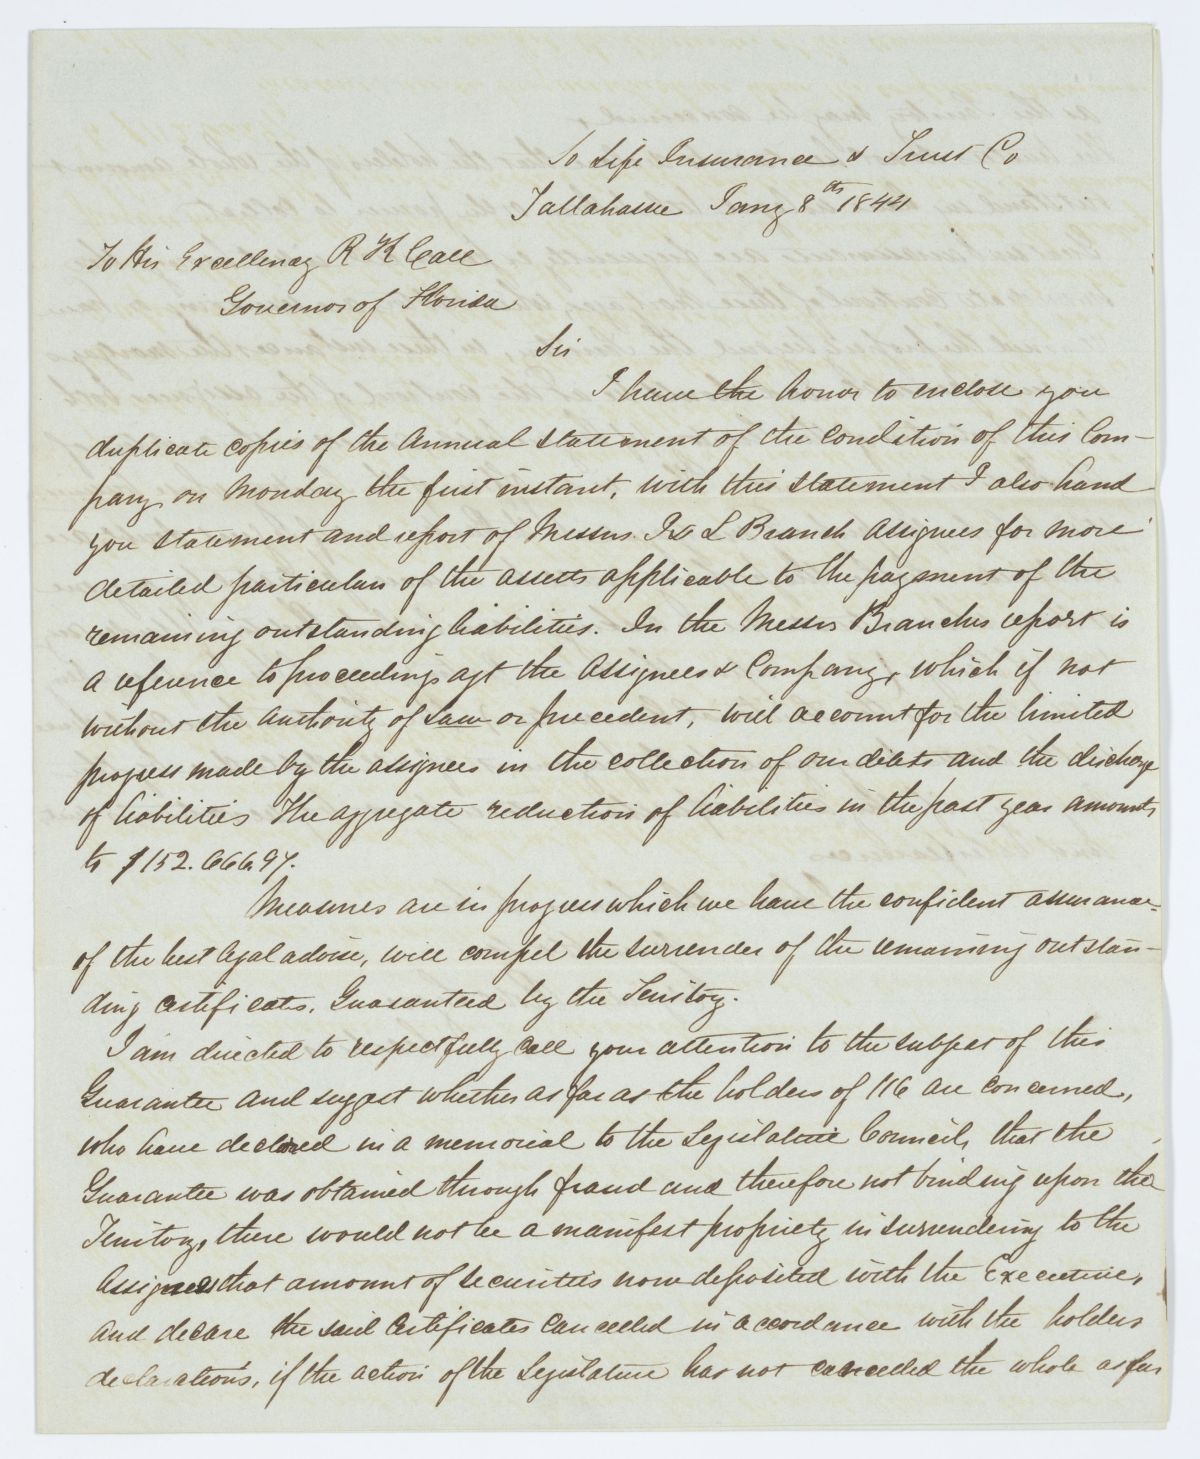 So Life Insurance & Trust Co
Tallahassee Jany 8th 1844
To His Excellency R K Call
Governor of Florida
Sir
I have the honor to enclose you
duplicate copies of the Annual Statement of the Condition of this Com-
pany on Monday the first instant, with this Statement I also hand
you Statement and report of Messrs. J & L Branch Assignees for more
detailed particulars of the assets applicable to the payment of the
remaining outstanding liabilities. In the Messrs Branches report is
a reference to proceedings agt the Assignees & Company, which if not
without the Authority of Law or precedent, will account for the limited
progress made by the assignees in the collection of our debts and the discharge
of liabilities The aggregate reduction of liabilities in the past year amounts
to $152.666.97.
Measures are in progress which we have the confident assurance
of the best legal advise, will compel the surrender of the remaining outstan-
ding certificates, Guaranteed by the Territory.
I am directed to respectfully call your attention to the subject of this
Guarantee and suggest whether as far as the holders of 116 are Concerned,
who have declared in a memorial to the Legislative Council, that the
Guarantee was obtained through fraud and therefore not binding upon the
Territory, there would not be a manifest propriety in surrendering to the
Assignees that amount of securities now deposited with the Executive,
and declare the said Certificates Cancelled in accordance with the holders
declarations, if the action of the Legislature has not cancelled the whole as far